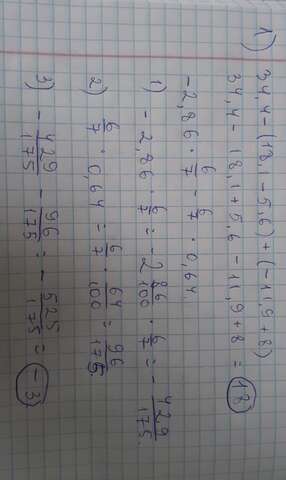 1)
34,4 - (18,1 - 5,6) + (-11,9 + 8)
34,4 - 18,1 + 5,6 - 11,9 + 8 = 18
-2,86 · 6/7 - 6/7 · 0,64
1) -2,86 · 6/7 = -2 86/100 · 6/7 = - 429/175.
2) 6/7 · 0,64 = 6/7 · 64/100 = 96/175.
3) - 429/175 - 96/175 = - 525/175 = -3